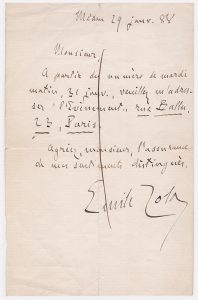 Médan 29 janv. 88
Monsieur,
A partir du numéro de mardi
matin, 31 janv., veuillez m'adres-
ser l'Evénement, rue Ballu,
23, Paris.
Agréez, monsieur, l'assurance
de mes sentiments distingués.
Emile Zola